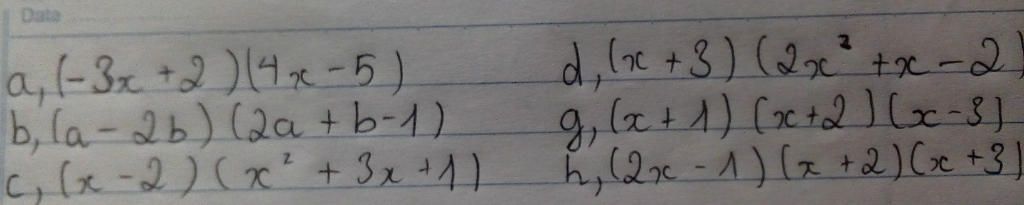 Date
a, (-3x + 2)(4x - 5)
b, (a - 2b) (2a + b - 1)
c, (x - 2) (x² + 3x + 1)
d, (x + 3) (2x² + x - 2)
g, (x + 1) (x + 2) (x - 3)
h, (2x - 1) (x + 2) (x + 3)